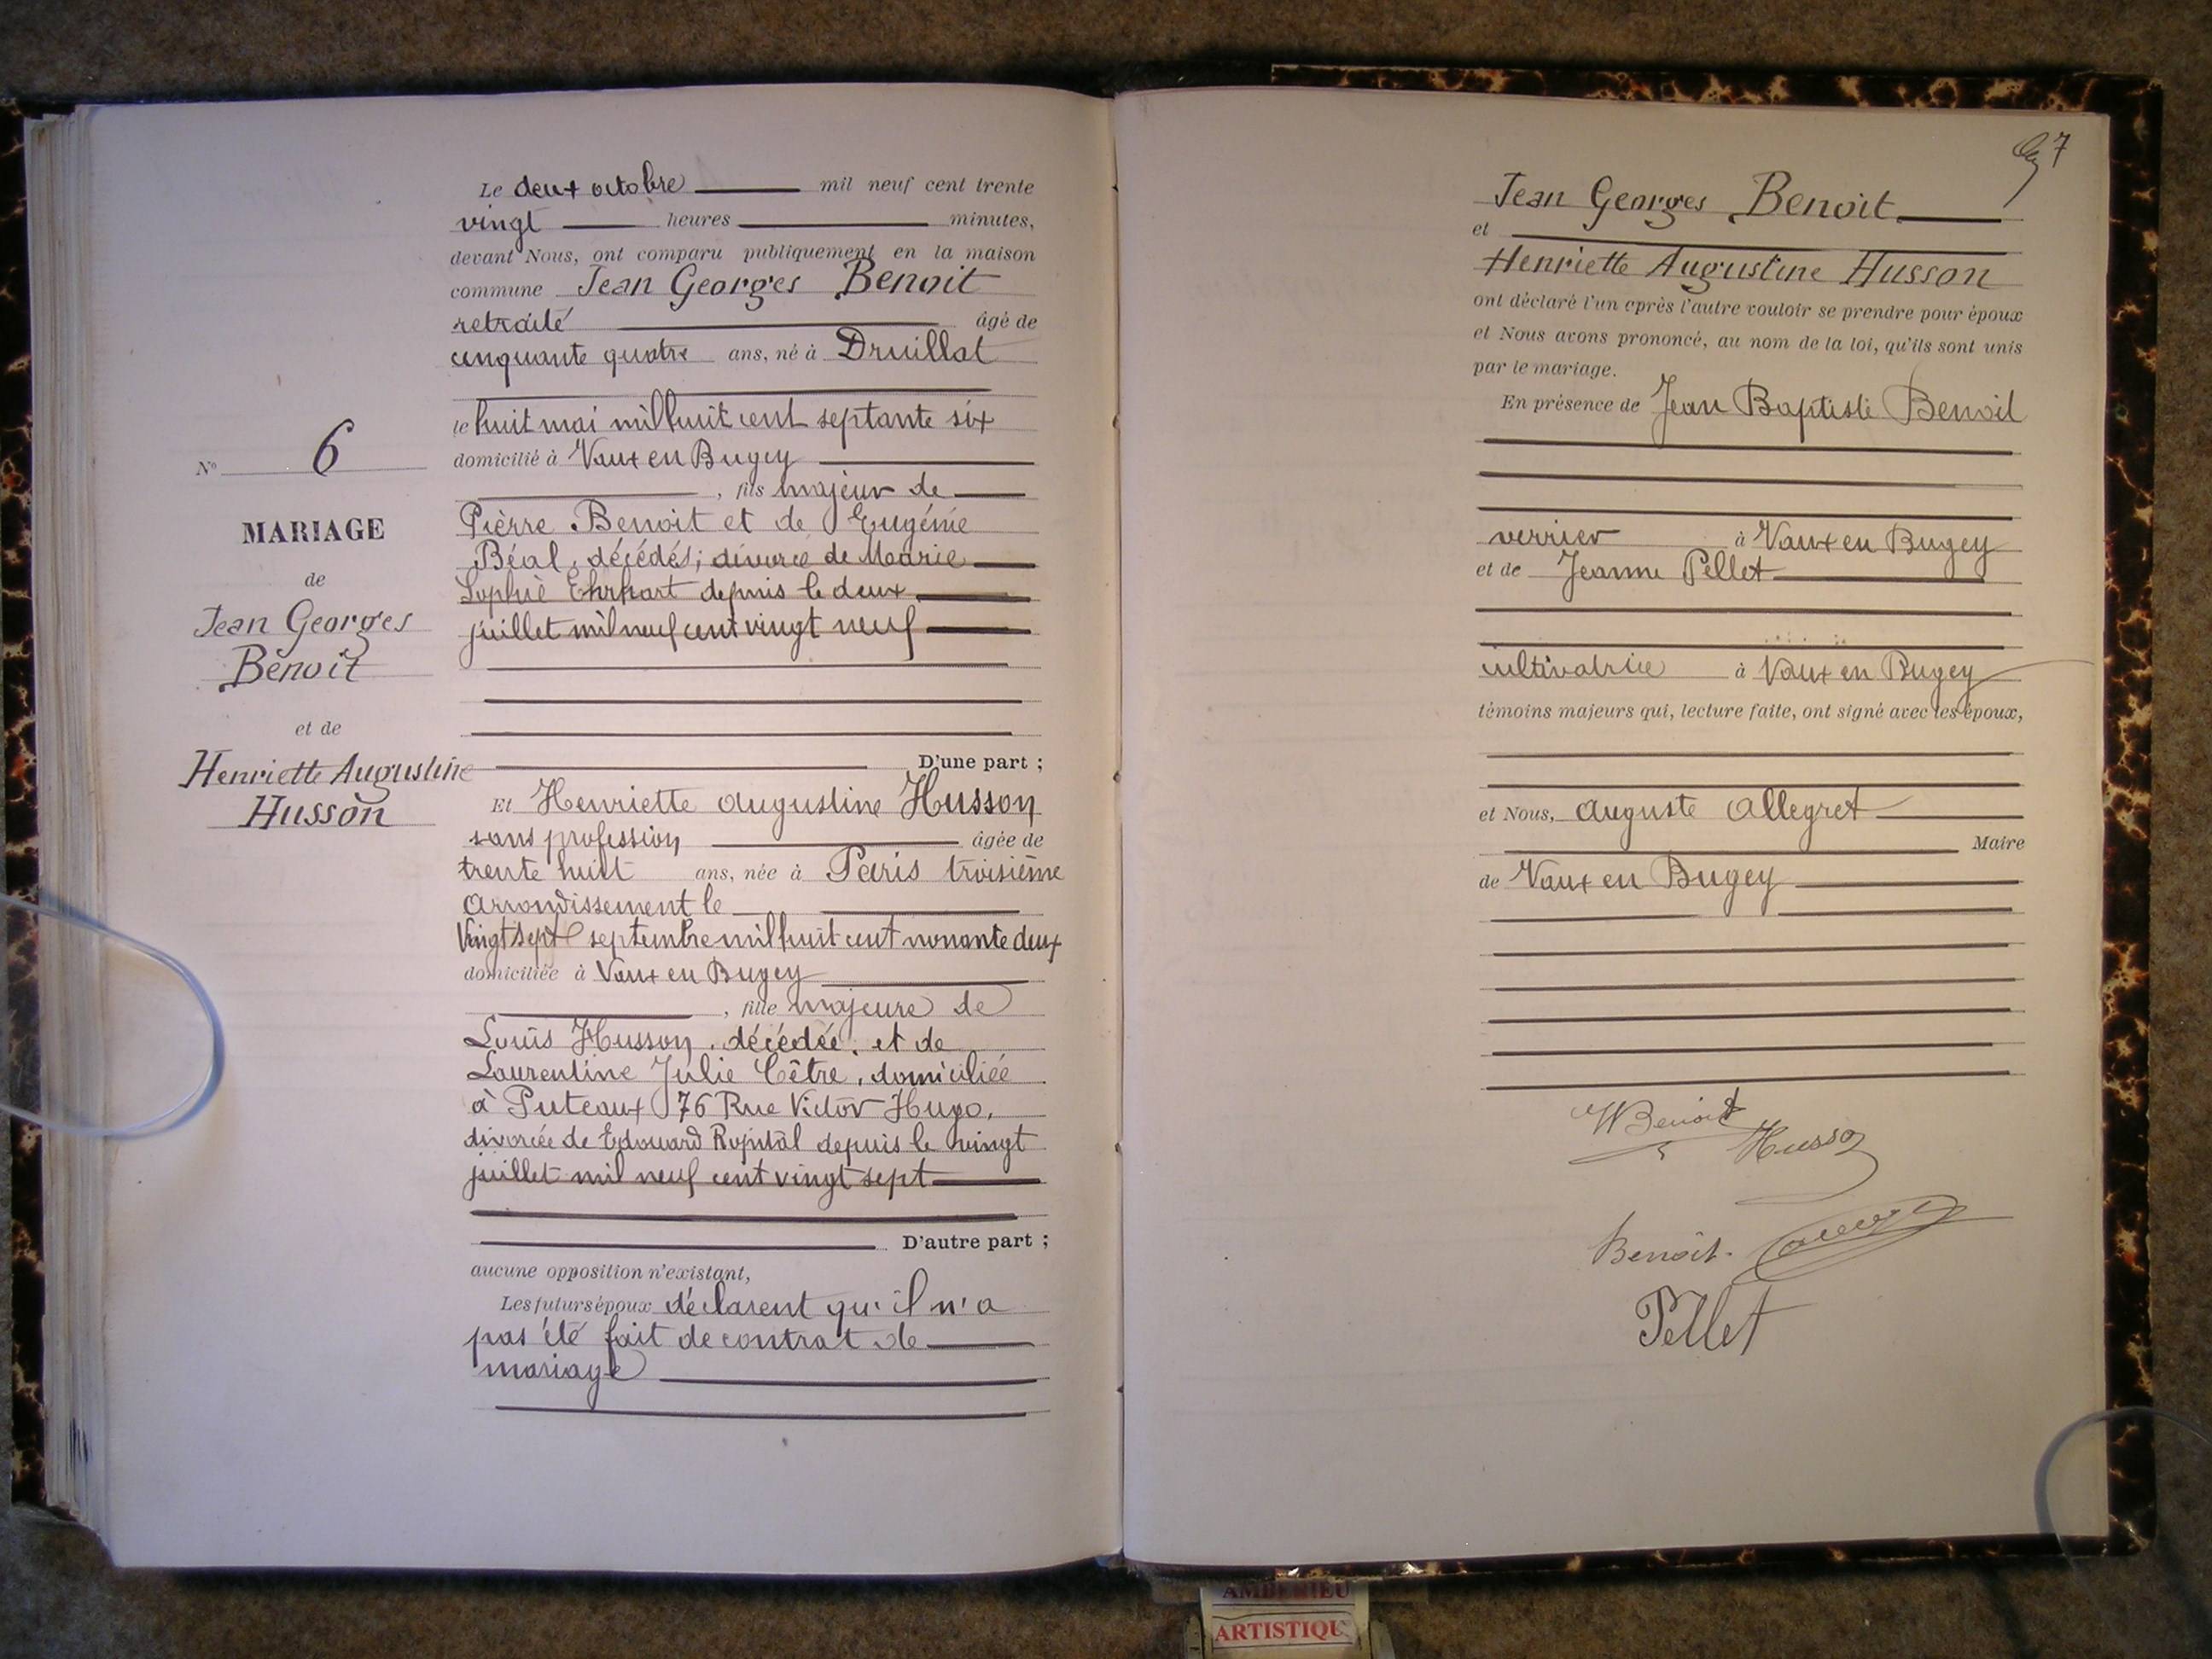 Le deux octobre mil neuf cent trente
vingt heures minutes,
devant Nous, ont comparu publiquement en la maison
commune Jean Georges Benoit
retraité âgé de
cinquante quatre ans, né à Druillat
le huit mai mil huit cent septante six
domicilié à Vaux en Bugey
, fils majeur de
Pierre Benoit et de Eugénie
Béal, décédés; divorcé de Marie
Sophie Ehrhart depuis le deux
juillet mil neuf cent vingt neuf
D'une part ;
Et Henriette Augustine Husson
sans profession âgée de
trente huit ans, née à Paris troisième
arrondissement le
Vingt sept septembre mil huit cent nonante deux
domiciliée à Vaux en Bugey
, fille majeure de
Louis Husson, décédée, et de
Laurentine Julie Cêtre, domiciliée
à Puteaux 76 Rue Victor Hugo,
divorcée de Edouard depuis le vingt
juillet mil neuf cent vingt sept
D'autre part ;
aucune opposition n'existant,
Les futurs époux déclarent qu'il n'a
pas été fait de contrat de
mariage
N° 6
MARIAGE
de
Jean Georges
Benoit
et de
Henriette Augustine
Husson
7
Jean Georges Benoit
et
Henriette Augustine Husson
ont déclaré l'un après l'autre vouloir se prendre pour époux
et Nous avons prononcé, au nom de la loi, qu'ils sont unis
par le mariage.
En présence de Jean Baptiste Benoit
verrier à Vaux en Bugey
et de Jeanne Pellet
cultivatrice à Vaux en Bugey
témoins majeurs qui, lecture faite, ont signé avec les époux,
et Nous, Auguste Allegret
Maire
de Vaux en Bugey
Benoit
Husson
Benoit.
Pellet
AMBERIEU
ARTISTIQU